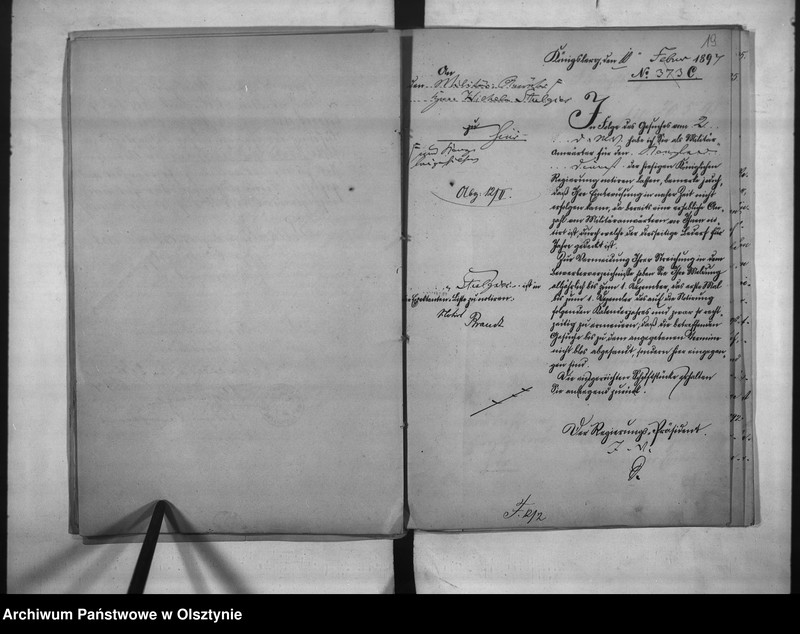 19
Königsberg, den 10 Febr 1897
No 373 C.
An
den Militär-Anwärter
Herrn Wilhelm
hier
Abg. 12/II.
In Folge des Gesuches vom 2.
d. Mts. habe ich Sie als Militär-
anwärter für den Kanzlei-
dienst der hiesigen Königlichen
Regierung notiren lassen, bemerke jedoch,
daß Ihre Einberufung in naher Zeit nicht
erfolgen kann, da bereits eine erhebliche An-
zahl von Militäranwärtern vor Ihnen no-
tirt ist, durch welche der derzeitige Bedarf für
Jahre gedeckt ist.
Zur Vermeidung Ihrer Streichung in dem
Bewerberverzeichnisse haben Sie Ihre Meldung
alljährlich bis zum 1. Dezember, das erste Mal
bis zum 1. Dezember des auf die Notirung
folgenden Kalenderjahres und zwar so recht-
zeitig zu erneuern, daß die betreffenden
Gesuche bis zu dem angegebenen Termine
nicht blos abgesandt, sondern hier eingegan-
gen sind.
Die eingereichten Schriftstücke erhalten
Sie anliegend zurück.
ist in
Expektanten-Liste zu notiren.
Notirt
Brandt
Der Regierungs-Präsident.
J. V.
F. 12/2
Archiwum Państwowe w Olsztynie